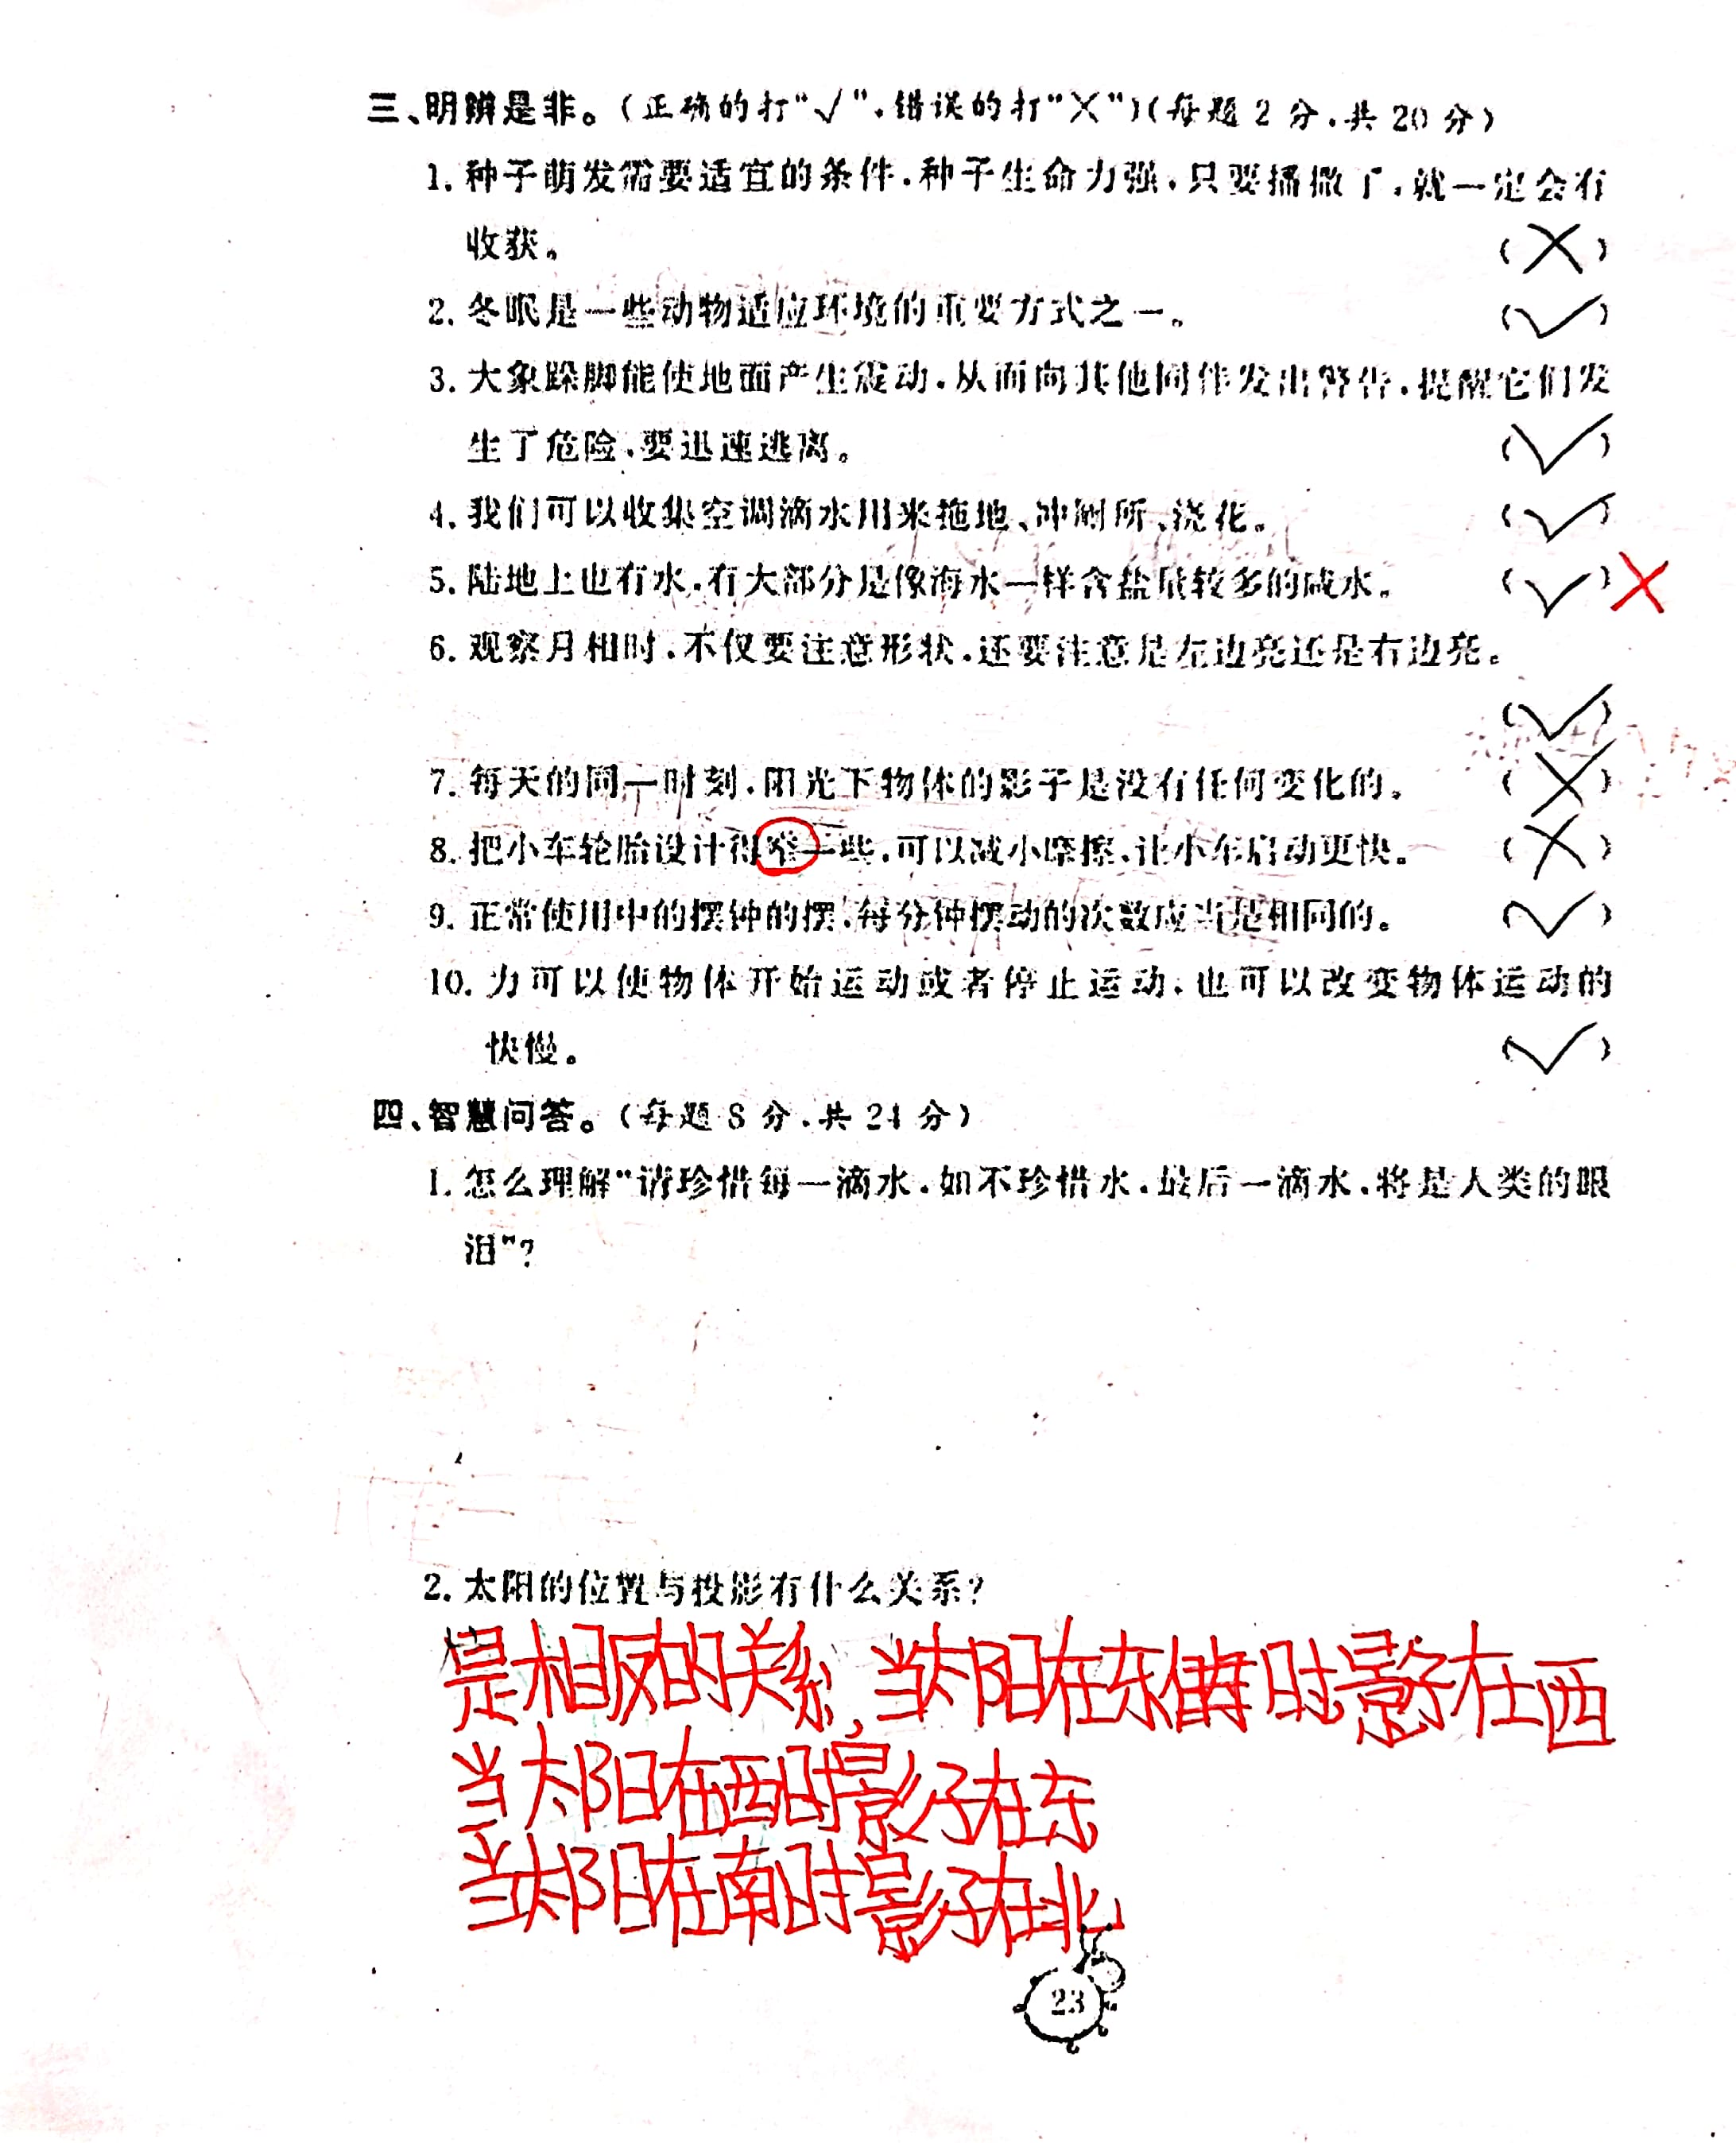 三、明辨是非。(正确的打“√”,错误的打“X”)(每题 2 分,共 20 分)
1. 种子萌发需要适宜的条件,种子生命力强,只要播撒了,就一定会有
收获。 (X)
2. 冬眠是一些动物适应环境的重要方式之一。 (√)
3. 大象跺脚能使地面产生震动,从而向其他同伴发出警告,提醒它们发
生了危险,要迅速逃离。 (√)
4. 我们可以收集空调滴水用来拖地、冲厕所、浇花。 (√)
5. 陆地上也有水,有大部分是像海水一样含盐量较多的咸水。 (√) X
6. 观察月相时,不仅要注意形状,还要注意是左边亮还是右边亮。
(√)
7. 每天的同一时刻,阳光下物体的影子是没有任何变化的。 (X)
8. 把小车轮胎设计得窄一些,可以减小摩擦,让小车启动更快。 (X)
9. 正常使用中的摆钟的摆,每分钟摆动的次数应当是相同的。 (√)
10. 力可以使物体开始运动或者停止运动,也可以改变物体运动的
快慢。 (√)
四、智慧问答。(每题 8 分,共 24 分)
1. 怎么理解“请珍惜每一滴水,如不珍惜水,最后一滴水,将是人类的眼
泪”?
2. 太阳的位置与投影有什么关系?
是相反的关系,当太阳在东 时影子在西
当太阳在西时影子在东
当太阳在南时影子在北
23